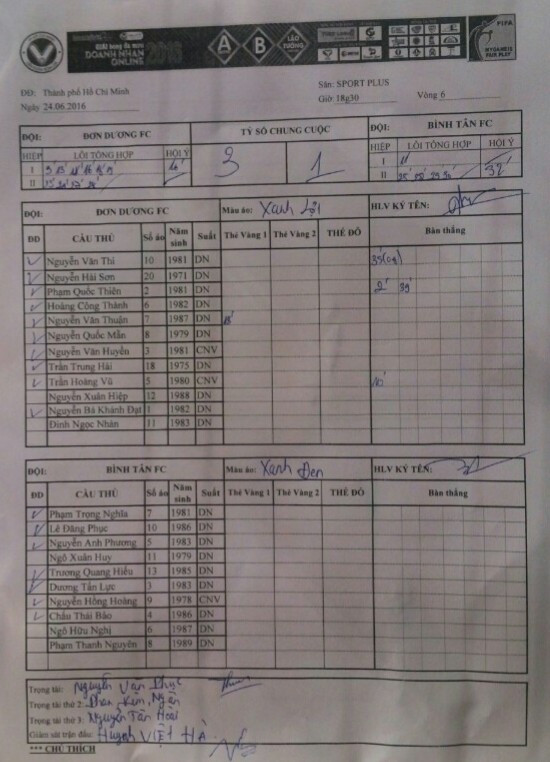 GIẢI bóng đá mini
DOANH NHÂN 2016
ONLINE
A B LÃO TƯỚNG
FIFA
MY GAME IS FAIR PLAY
ĐĐ: Thành phố Hồ Chí Minh
Sân: SPORT PLUS
Ngày 24.06.2016 Giờ: 18g30 Vòng 6
ĐỘI: ĐƠN DƯƠNG FC TỶ SỐ CHUNG CUỘC ĐỘI: BÌNH TÂN FC
HIỆP LỖI TỔNG HỢP HỘI Ý 3 1 HIỆP LỖI TỔNG HỢP HỘI Ý
I I 11'
II II
ĐỘI: ĐƠN DƯƠNG FC Màu áo: Xanh Lợt HLV KÝ TÊN:
ĐD CẦU THỦ Số áo Năm sinh Suất Thẻ Vàng 1 Thẻ Vàng 2 THẺ ĐỎ Bàn thắng
Nguyễn Văn Thi 10 1981 DN 35'(og)
Nguyễn Hải Sơn 20 1971 DN
Phạm Quốc Thiện 2 1981 DN 2' 39'
Hoàng Công Thành 6 1982 DN
Nguyễn Văn Thuận 7 1987 DN 18'
Nguyễn Quốc Mẫn 8 1979 DN
Nguyễn Văn Huyền 3 1981 CNV
Trần Trung Hải 18 1975 DN
Trần Hoàng Vũ 5 1980 CNV 10'
Nguyễn Xuân Hiệp 12 1988 DN
Nguyễn Bá Khánh Đạt 1 1982 DN
Đinh Ngọc Nhân 11 1983 DN
ĐỘI: BÌNH TÂN FC Màu áo: Xanh Đen HLV KÝ TÊN:
ĐD CẦU THỦ Số áo Năm sinh Suất Thẻ Vàng 1 Thẻ Vàng 2 THẺ ĐỎ Bàn thắng
Phạm Trọng Nghĩa 7 1981 DN
Lê Đăng Phục 10 1986 DN
Nguyễn Anh Phương 5 1983 DN
Ngô Xuân Huy 11 1979 DN
Trương Quang Hiếu 13 1985 DN
Dương Tấn Lực 3 1983 DN
Nguyễn Hồng Hoàng 9 1978 CNV
Châu Thái Bảo 4 1986 DN
Ngô Hữu Nghị 6 1987 DN
Phạm Thanh Nguyên 8 1989 DN
Trọng tài: Nguyễn Văn Phục
Trọng tài thứ 2: Phan Kim Ngân
Trọng tài thứ 3: Nguyễn Tấn Hoài
Giám sát trận đấu: HUỲNH VIỆT HÀ
*** CHÚ THÍCH